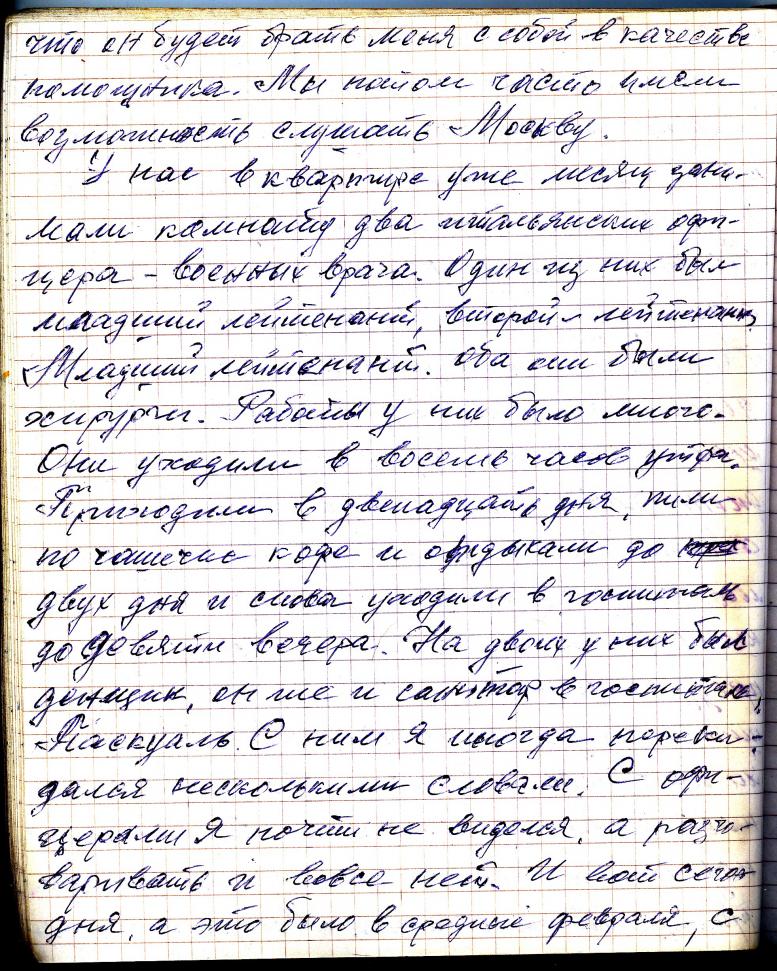 что он будет брать меня с собой в качестве
помощника. Мы потом часто имели
возможность слушать Москву.
У нас в квартире уже месяц зани-
мали комнату два итальянских офи-
цера - военных врача. Один из них был
младший лейтенант, второй - лейтенант.
Младший лейтенант. Оба они были
хирурги. Работы у них было много.
Они уходили в восемь часов утра.
Приходили в двенадцать дня, пили
по чашечке кофе и отдыхали до
двух дня и снова уходили в госпиталь
до девяти вечера. На двоих у них был
денщик, он же и санитар в госпитале,
Паскуаль. С ним я иногда переки-
дался несколькими словами. С офи-
церами я почти не виделся, а разго-
варивать и вовсе нет. И вот сего-
дня, а это было в средине февраля, с